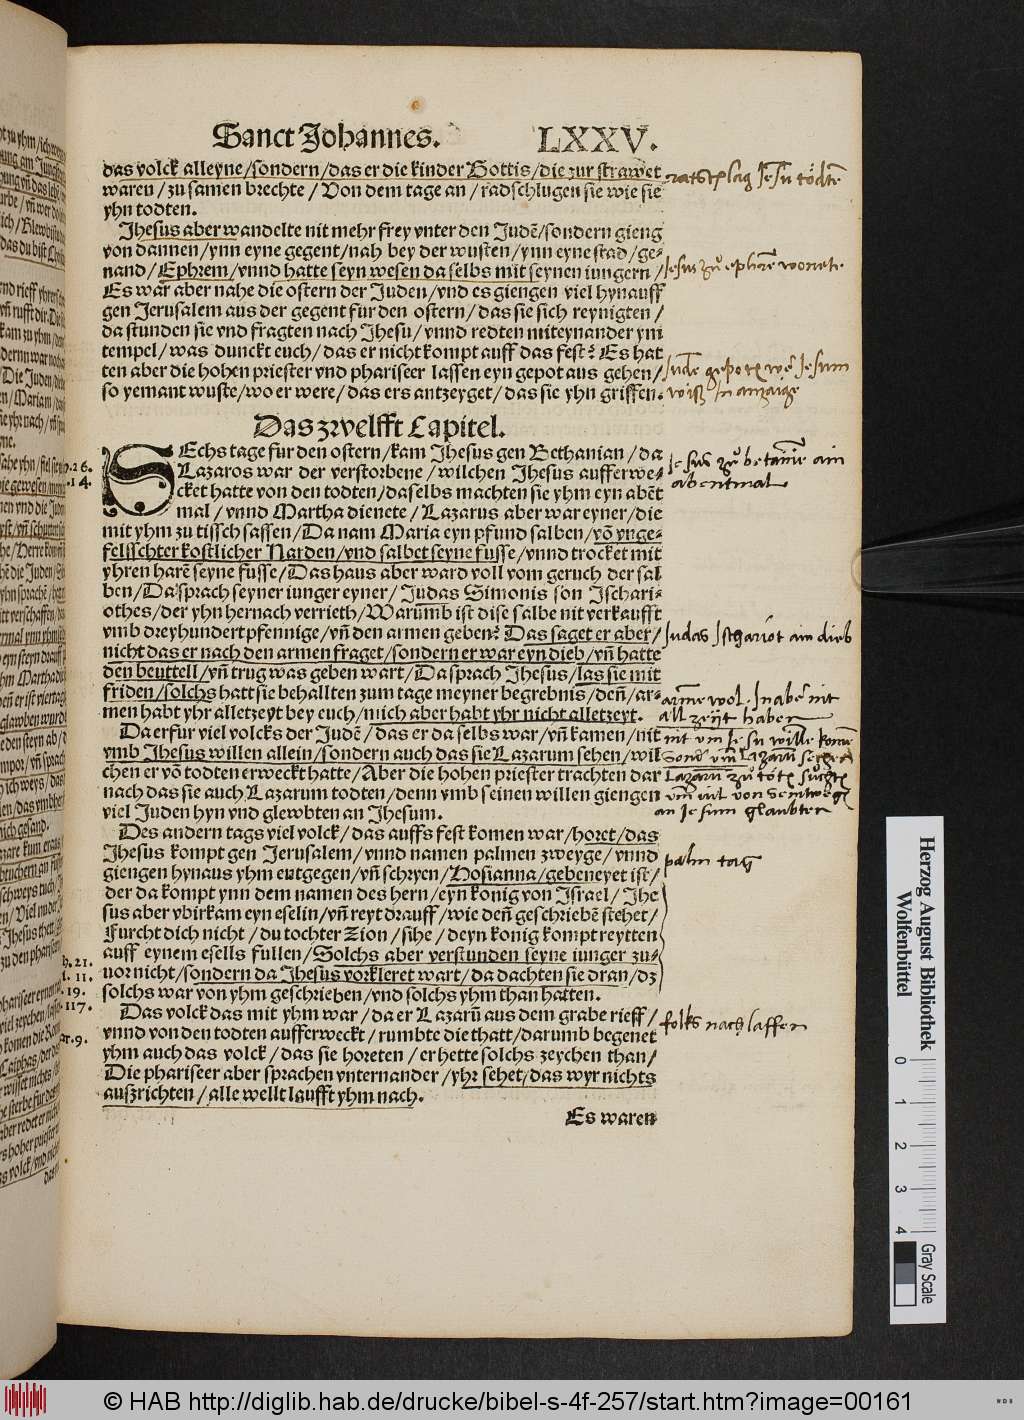 Sanct Johannes. LXXV.
das volck alleyne/sondern/das er die kinder Gottis/die zur strawet
waren/zu samen brechte/Von dem tage an/radschlugen sie wie sie
yhn todten.
Jhesus aber wandelte nit mehr frey vnter den Judẽ/sondern gieng
von dannen/ynn eyne gegent/nah bey der wusten/ynn eyne stad/ge-
nand/Ephrem/vnnd hatte seyn wesen da selbs mit seynen iungern/
Es war aber nahe die ostern der Juden/vnd es giengen viel hynauff
gen Jerusalem aus der gegent fur den ostern/das sie sich reynigten/
da stunden sie vnd fragten nach Jhesu/vnnd redten miteynander ym
tempel/was dunckt euch/das er nicht kompt auff das fest? Es hat
ten aber die hohen priester vnd phariseer lassen eyn gepot aus gehen/
so yemant wuste/wo er were/das ers antzeyget/das sie yhn griffen.
Das zwelfft Capitel.
SEchs tage fur den ostern/kam Jhesus gen Bethanian/da
Lazaros war der verstorbene/wilchen Jhesus aufferwe-
cket hatte von den todten/daselbs machten sie yhm eyn abẽt
mal/vnnd Martha dienete/Lazarus aber war eyner/die
mit yhm zu tissch sassen/Da nam Maria eyn pfund salben/võ vnge-
felsschter kostlicher Narden/vnd salbet seyne fusse/vnnd trocket mit
yhren harẽ seyne fusse/Das haus aber ward voll vom geruch der sal
ben/Da sprach seyner iunger eyner/Judas Simonis son Jschari-
othes/der yhn hernach verrieth/Warũmb ist dise salbe nit verkaufft
vmb dreyhundert pfennige/vñ den armen geben? Das saget er aber/
nicht das er nach den armen fraget/sondern er war eyn dieb/vñ hatte
den beuttell/vñ trug was geben wart/Da sprach Jhesus/las sie mit
friden/solchs hatt sie behallten zum tage meyner begrebnis/deñ/ar-
men habt yhr alletzeyt bey euch/mich aber habt yhr nicht alletzeyt.
Da erfur viel volcks der Judẽ/das er da selbs war/vñ kamen/nit
vmb Jhesus willen allein/sondern auch das sie Lazarum sehen/wil
chen er võ todten erweckt hatte/Aber die hohen priester trachten dar
nach das sie auch Lazarum todten/denn vmb seinen willen giengen
viel Juden hyn vnd glewbten an Jhesum.
Des andern tags viel volck/das auffs fest komen war/horet/das
Jhesus kompt gen Jerusalem/vnnd namen palmen zweyge/vnnd
giengen hynaus yhm entgegen/vñ schryen/Hosianna/gebeneyet ist/
der da kompt ynn dem namen des hern/eyn konig von Israel/Jhe
sus aber vbirkam eyn eselin/vñ reyt drauff/wie deñ geschriebẽ stehet/
Furcht dich nicht/du tochter Zion/sihe/deyn konig kompt reytten
auff eynem esells fullen/Solchs aber verstunden seyne iunger zu-
uor nicht/sondern da Jhesus vorkleret wart/da dachten sie dran/dz
solchs war von yhm geschrieben/vnd solchs yhm than hatten.
Das volck das mit yhm war/da er Lazarũ aus dem grabe rieff/
vnnd von den todten aufferweckt/rumbte die thatt/darumb begenet
yhm auch das volck/das sie horeten/er hette solchs zeychen than/
Die phariseer aber sprachen vnternander/yhr sehet/das wyr nichts
auszrichten/alle wellt laufft yhm nach.
Es waren
ratschlag Jesu tödtẽ
Jesus zu ephrẽ wonete
Jesus zu betanie ain
abentmal
Judas Ischariot ain dieb
arme wol. In abẽ nit
all zeyt haben
an Jesum glaubten
palm tag
folks nach laffen
26.
14.
21.
11.
19.
117.
ar. 9.
Herzog August Bibliothek
Wolfenbüttel
0 1 2 3 4
Gray Scale
© HAB http://diglib.hab.de/drucke/bibel-s-4f-257/start.htm?image=00161